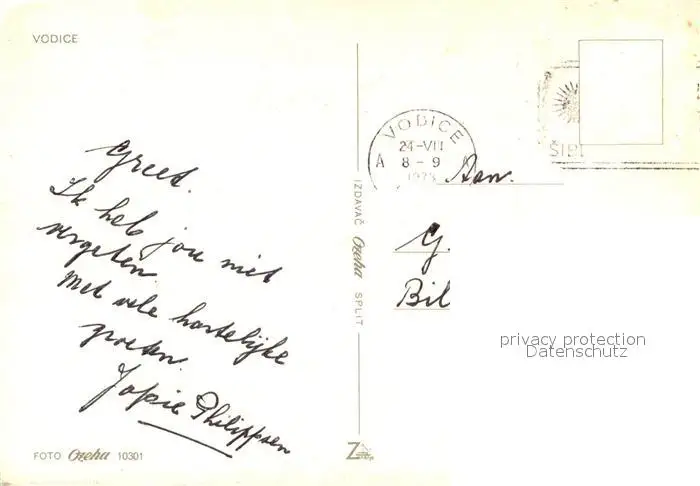 VODICE
Greet.
Ik heb jou niet
vergeten.
Met vele hartelijke
groeten.
Jopie Philippsen
FOTO Ozeha 10301
IZDAVAČ Ozeha SPLIT
VODICE
24-VII
A 8 - 9
ŠIB
Aan.
G.
Bil
privacy protection
Datenschutz